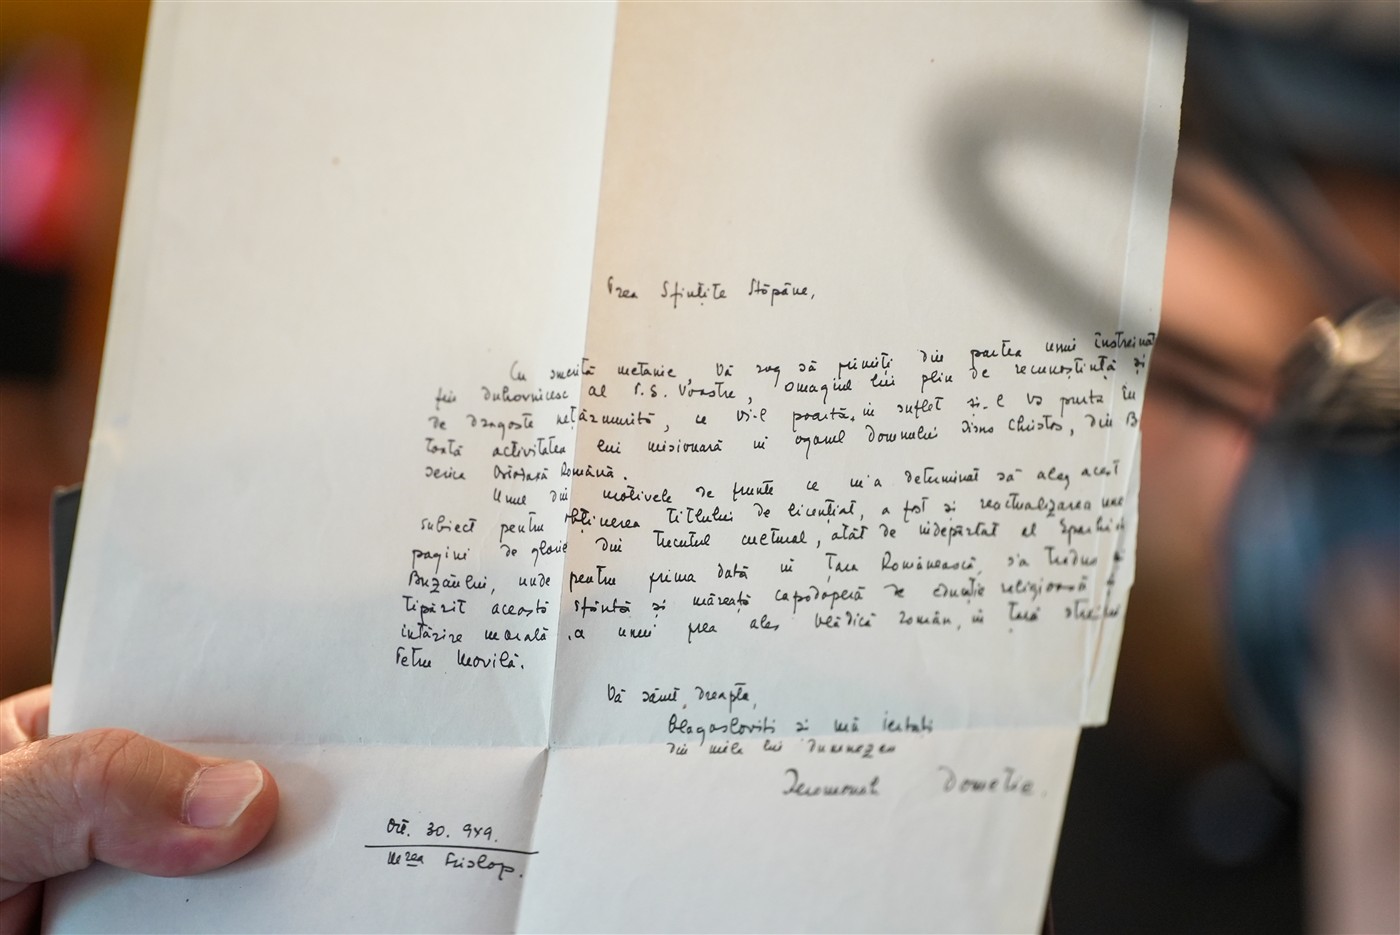 Prea Sfințite Stăpâne,
Cu smerită metanie, Vă rog să primiți din partea unui înstreinat
fiu duhovnicesc al P.S. Voastre, omagiul lui plin de recunoștință și
de dragoste nețărmurită, ce vi-l poartă în suflet și-l va purta în
toată activitatea lui misionară în ogorul Domnului Iisus Christos, din Bi
serica Ortodoxă Română.
Unul din motivele de frunte ce m'a determinat să aleg acest
subiect pentru obținerea titlului de licențiat, a fost și reactualizarea unei
pagini de glorie din trecutul cultural, atât de îndepărtat al Eparhiei
Buzăului, unde pentru prima dată în Țara Românească, s'a tradus și
tipărit această sfântă și măreață capodoperă de educație religioasă și
întărire morală a unui prea ales vlădică român, în țară străină
Petru Movilă.
Vă sărut dreapta,
Blagosloviti și mă iertati
din mila lui Dumnezeu
Ieromonah Dometie.
Oct. 30. 949.
M-rea Prislop.